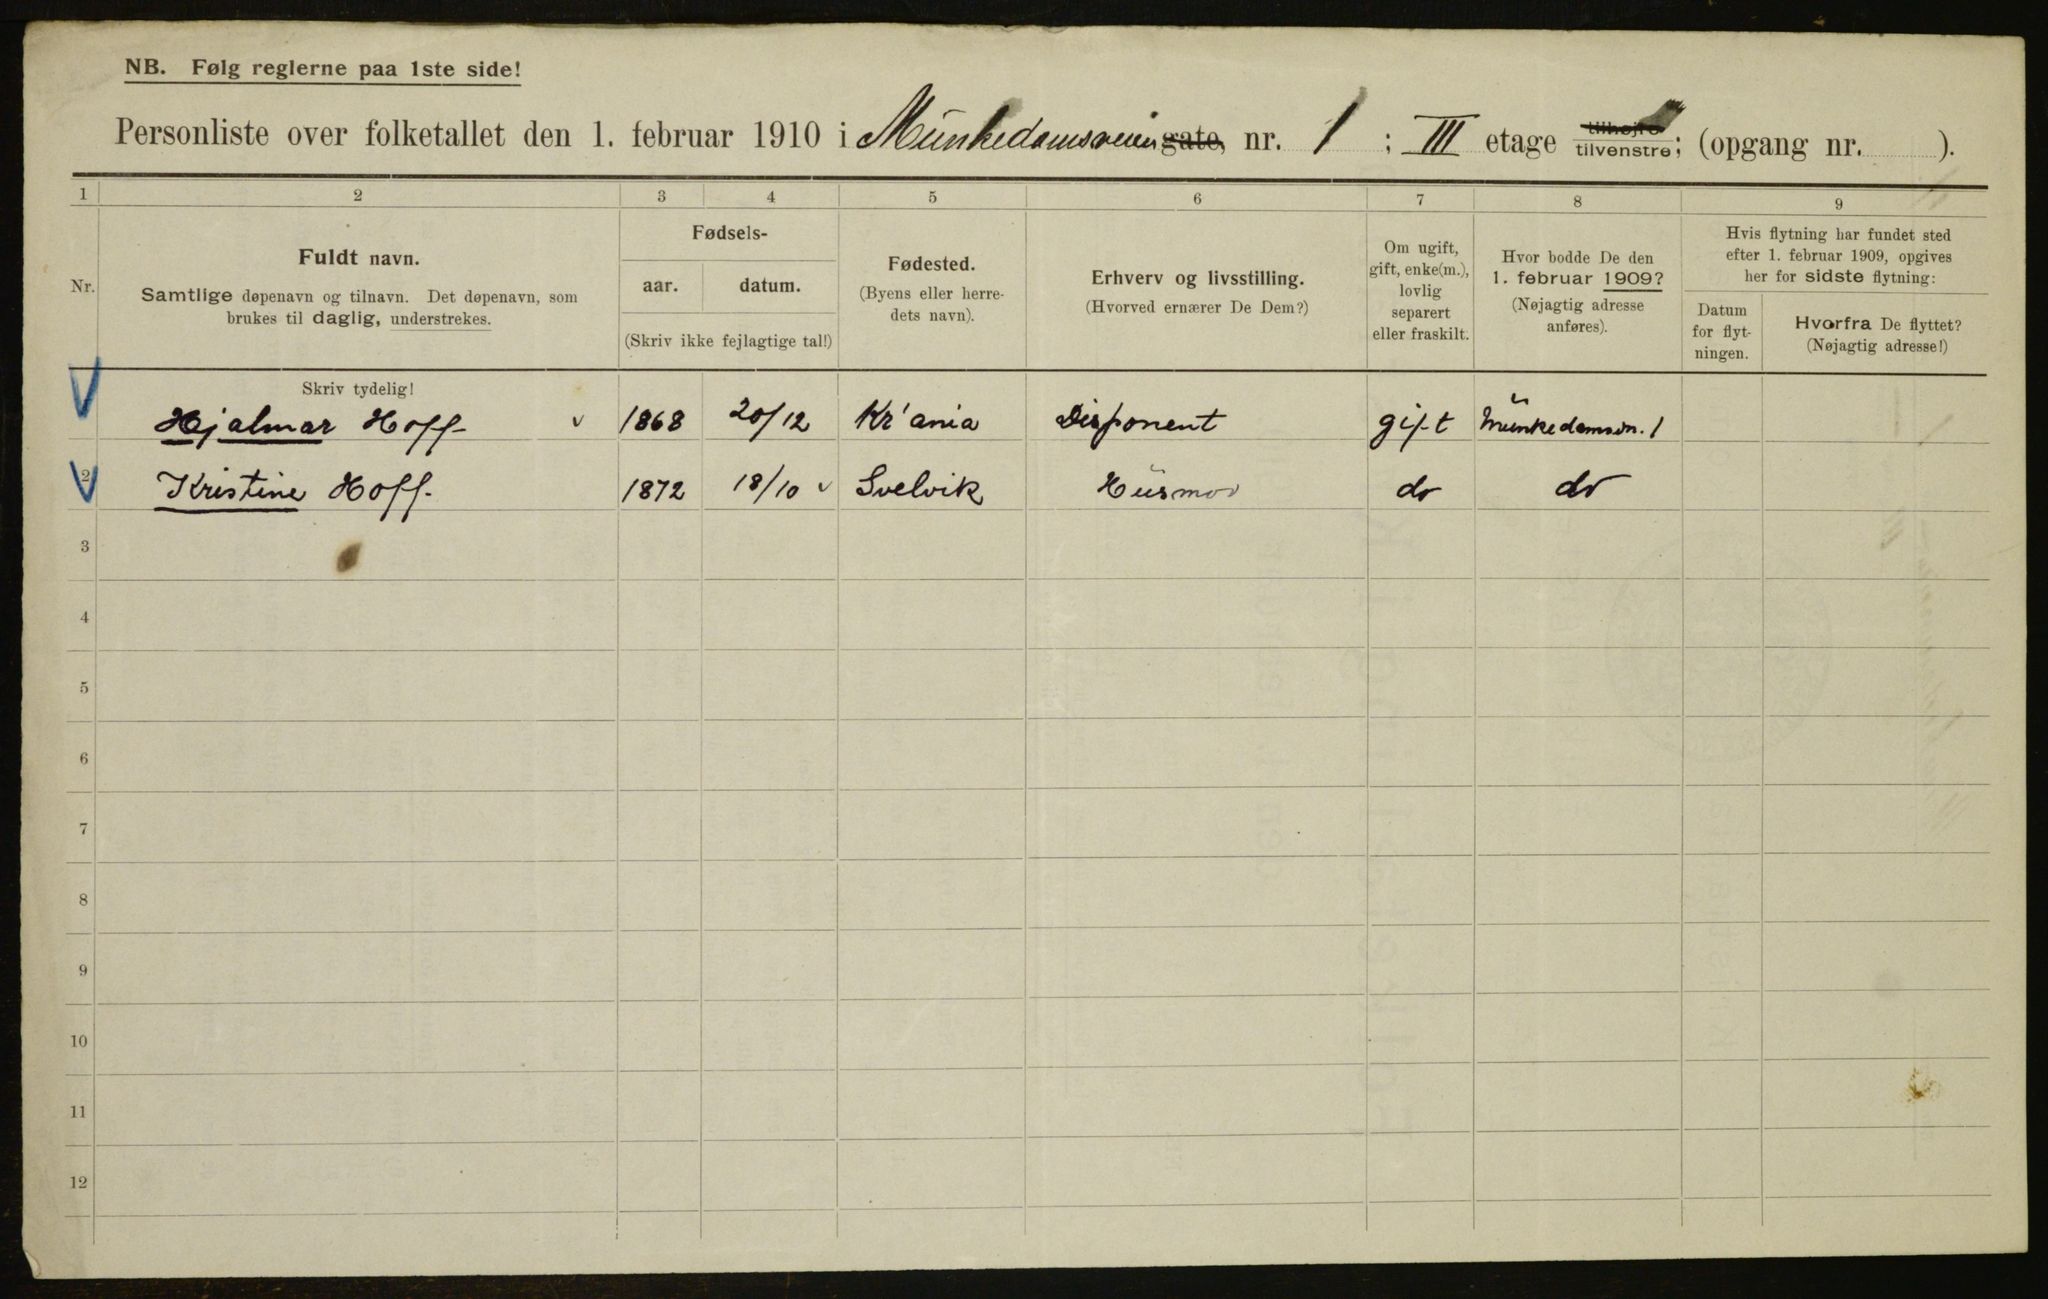 NB. Følg reglerne paa 1ste side!
Personliste over folketallet den 1. februar 1910 i Munkedamsveien gate, nr. 1 ; III etage tilhøjre tilvenstre; (opgang nr. ).
1 2 3 4 5 6 7 8 9
Nr.
Fuldt navn.
Samtlige døpenavn og tilnavn. Det døpenavn, som
brukes til daglig, understrekes.
Fødsels-
aar. datum.
(Skriv ikke fejlagtige tal!)
Fødested.
(Byens eller herre-
dets navn).
Erhverv og livsstilling.
(Hvorved ernærer De Dem?)
Om ugift,
gift, enke(m.),
lovlig
separert
eller fraskilt.
Hvor bodde De den
1. februar 1909?
(Nøjagtig adresse
anføres).
Hvis flytning har fundet sted
efter 1. februar 1909, opgives
her for sidste flytning:
Datum
for flyt-
ningen.
Hvorfra De flyttet?
(Nøjagtig adresse!)
Skriv tydelig!
Hjalmar Hoff 1868 20/12 Kr'ania Disponent gift Munkedamsvn. 1
2 Kristine Hoff. 1872 18/10 Svelvik Husmor do do
3
4
5
6
7
8
9
10
11
12